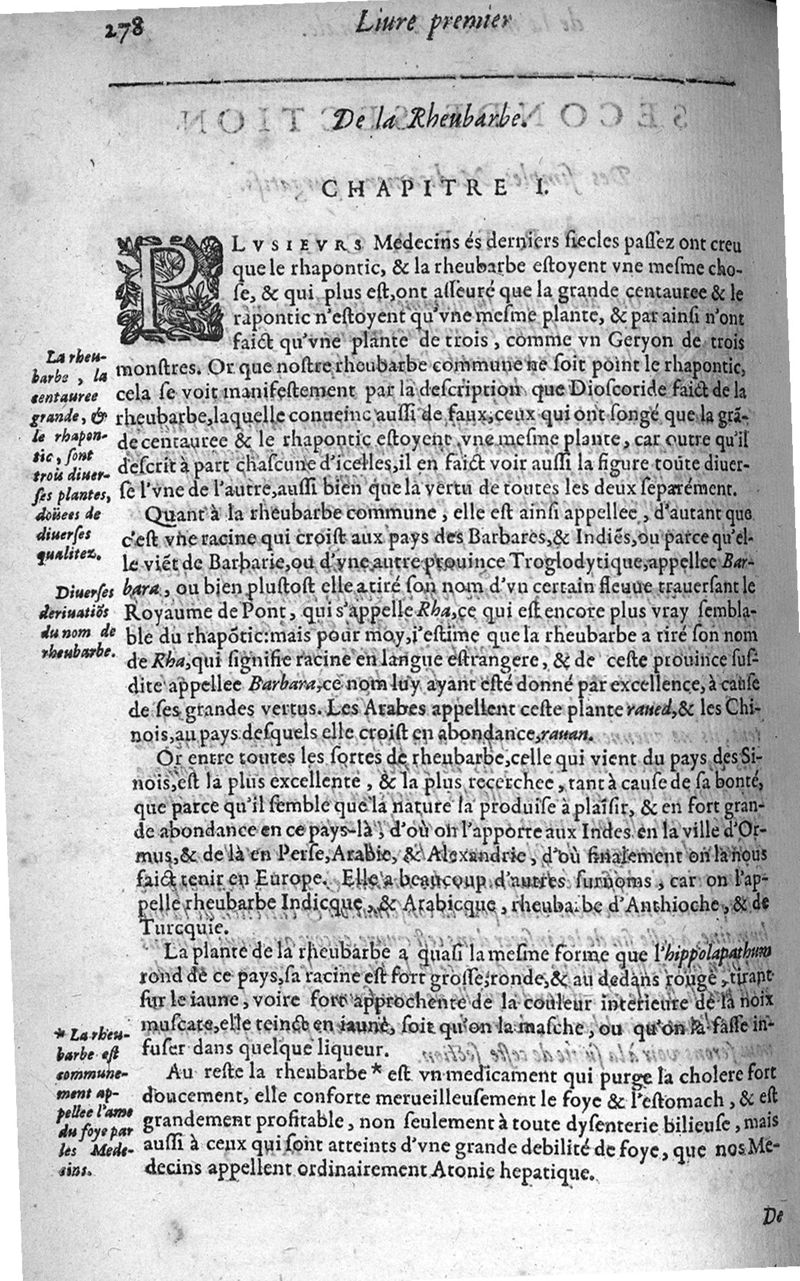 278
Liure premier
De la Rheubarbe.
CHAPITRE I.
PLVSIEVRS Medecins és derniers siecles passez ont creu
que le rhapontic, & la rheubarbe estoyent vne mesme cho-
se, & qui plus est, ont asseuré que la grande centauree & le
rapontic n'estoyent qu'vne mesme plante, & par ainsi n'ont
faict qu'vne plante de trois, comme vn Geryon de trois
monstres. Or que nostre rheubarbe commune ne soit point le rhapontic,
cela se voit manifestement par la description que Dioscoride faict de la
rheubarbe, laquelle conueinc aussi de faux, ceux qui ont songé que la grã-
de centauree & le rhapontic estoyent vne mesme plante, car outre qu'il
descrit à part chascune d'icelles, il en faict voir aussi la figure toute diuer-
se l'vne de l'autre, aussi bien que la vertu de toutes les deux separément.
La rheu-
barbe, la
centauree
grande, &
le rhapon-
tic, sont
trois diuer-
ses plantes,
doüees de
diuerses
qualitez.
Quant à la rheubarbe commune, elle est ainsi appellee, d'autant que
c'est vne racine qui croist aux pays des Barbares, & Indiés, ou parce qu'el-
le viét de Barbarie, ou d'vne autre prouince Troglodytique, appellee Bar-
bara, ou bien plustost elle a tiré son nom d'vn certain fleuue trauersant le
Royaume de Pont, qui s'appelle Rha, ce qui est encore plus vray sembla-
ble du rhapõtic: mais pour moy, i'estime que la rheubarbe a tiré son nom
de Rha, qui signifie racine en langue estrangere, & de ceste prouince sus-
dite appellee Barbara, ce nom luy ayant esté donné par excellence, à cause
de ses grandes vertus. Les Arabes appellent ceste plante raued, & les Chi-
nois, au pays desquels elle croist en abondance, rauan.
Diuerses
deriuatiõs
du nom de
rheubarbe.
Or entre toutes les sortes de rheubarbe, celle qui vient du pays des Si-
nois, est la plus excellente, & la plus recerchee, tant à cause de sa bonté,
que parce qu'il semble que la nature la produise à plaisir, & en fort gran-
de abondance en ce pays-là, d'où on l'apporte aux Indes en la ville d'Or-
mus, & de là en Perse, Arabie, & Alexandrie, d'où finalement on la nous
faict tenir en Europe. Elle a beaucoup d'autres surnoms, car on l'ap-
pelle rheubarbe Indicque, & Arabicque, rheubarbe d'Anthioche, & de
Turcquie.
La plante de la rheubarbe a quasi la mesme forme que l'hippolapathum
rond de ce pays, sa racine est fort grosse, ronde, & au dedans rouge, tirant
sur le iaune, voire fort approchente de la couleur interieure de la noix
muscate, elle teinct en iaune, soit qu'on la masche, ou qu'on la fasse in-
fuser dans quelque liqueur.
Au reste la rheubarbe * est vn medicament qui purge la cholere fort
doucement, elle conforte merueilleusement le foye & l'estomach, & est
grandement profitable, non seulement à toute dysenterie bilieuse, mais
aussi à ceux qui sont atteints d'vne grande debilité de foye, que nos Me-
decins appellent ordinairement Atonie hepatique.
* La rheu-
barbe est
commune-
ment ap-
pellee l'ame
du foye par
les Mede-
sins.
De